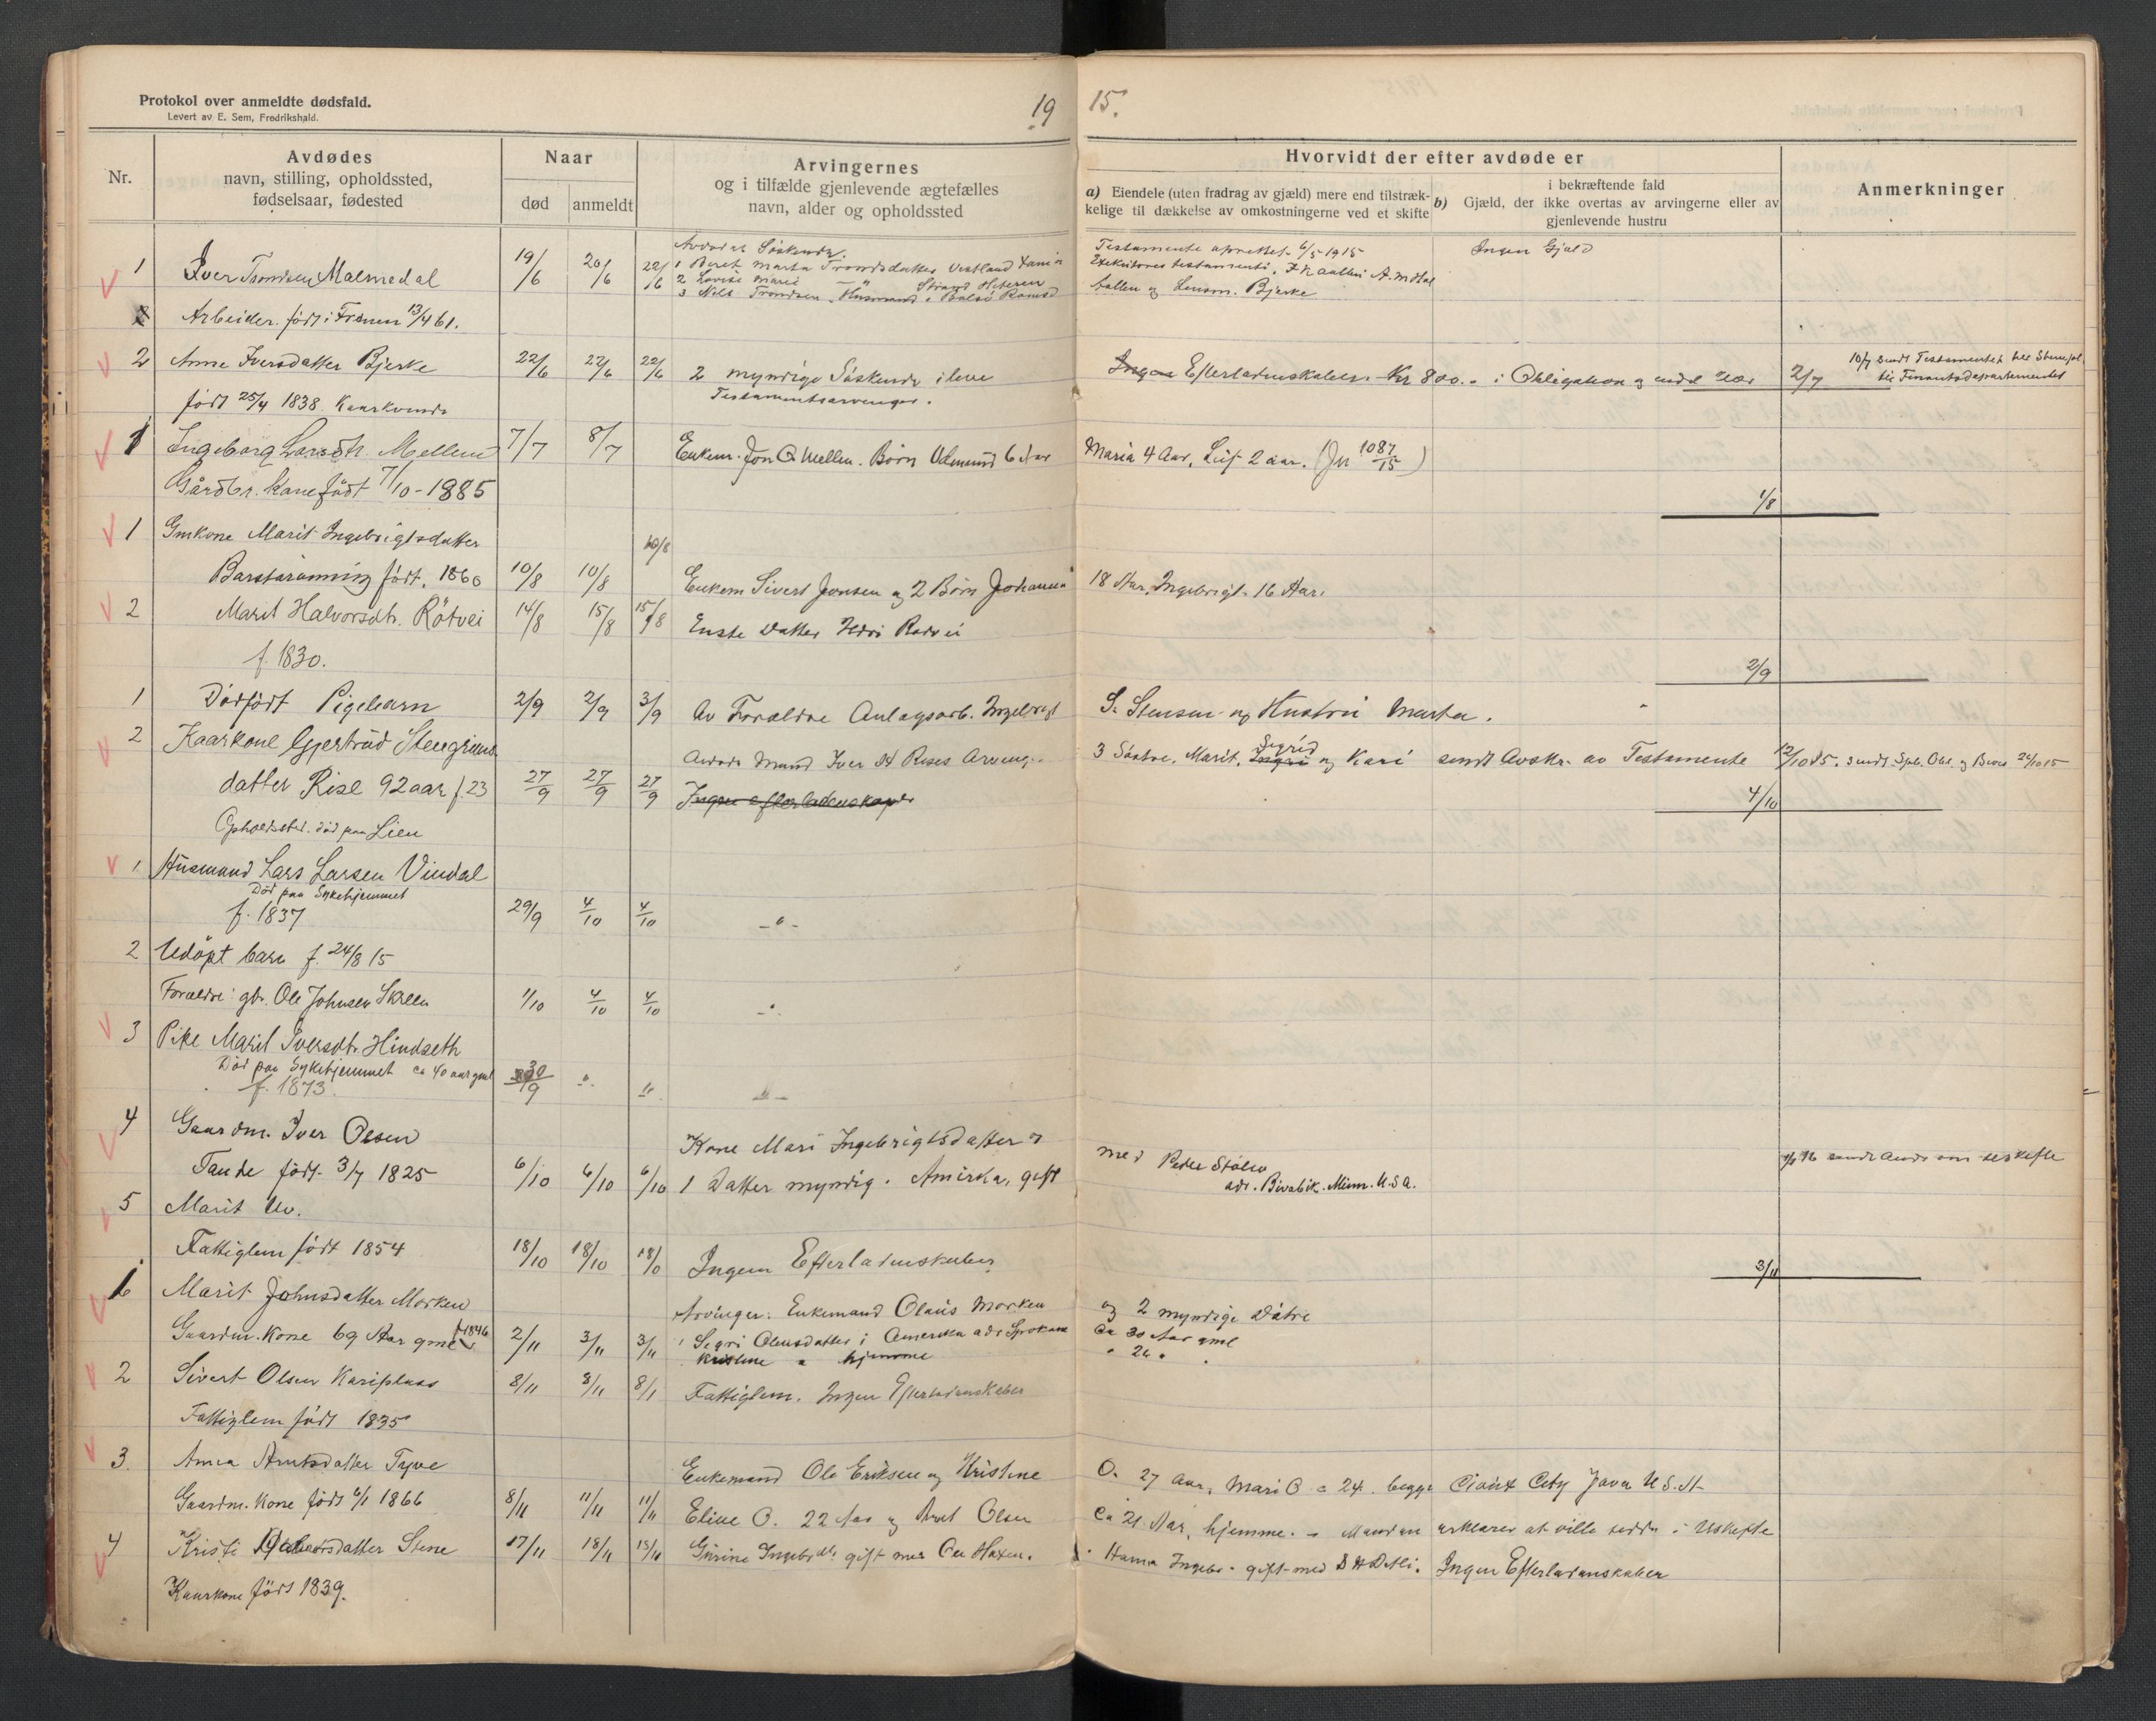 Protokol over anmeldte dødsfald.
Levert av E. Sem, Fredrikshald.
19 15.
Nr.
Avdødes
navn, stilling, opholdssted,
fødselsaar, fødested
Naar
død anmeldt
Arvingernes
og i tilfælde gjenlevende ægtefælles
navn, alder og opholdssted
Hvorvidt der efter avdøde er
a) Eiendele (uten fradrag av gjæld) mere end tilstræk-
kelige til dækkelse av omkostningerne ved et skifte
i bekræftende fald
b) Gjæld, der ikke overtas av arvingerne eller av
gjenlevende hustru
Anmerkninger
1 Iver Trondsen Malmedal 19/6 20/6 22/6
Avdødes Søskende
1 Beret Marta Trondsdatter Vestland
2 Lovise Marie - " - Strand Hiteren
3 Nils Trondsen, Husmand, Bolsø Romsd
Testamente oprettet 6/5 1915
og Lensm. Bjerke
Ingen Gjæld
Arbeider. født i Frænen 13/4 61.
2 Anne Iversdatter Bjerke 22/6 22/6 22/6 2 myndige Søskende i live
Testamentsarvinger.
Ingen Efterladenskaber Kr 800.- i Obligation og 2/7
10/7 sendt Testamentet til
til Finantsdepartementet
født 25/4 1838. Kaarkvinde
1 Ingeborg Larsdtr. Mellem 7/7 8/7 Enkem. Jon O Mellem. Børn Odmund 6 Aar Maria 4 Aar, Leif 2 aar. (Jn 1087/15)
Gårdbr. Kone født 7/10-1885
1/8
1 Gmkone Marit Ingebrigtsdatter 10/8
Barstarønning født. 1860 10/8 10/8 Enkem Sivert Jonsen og 2 Børn Johanna 18 Aar, Ingebrigt 16 Aar.
2 Marit Halvorsdtr. Rötvei 14/8 15/8 15/8 Eneste Datter
f. 1830.
2/9
1 Dødfødt Pigebarn 2/9 2/9 3/9 Av Forældre Anlægsarb. Ingebrigt S. Stensen og Hustru Marta.
2 Kaarkone Gjertrud Steengrims
Avdøde Mand Iver H Rises Arving. 3 Søstre, Marit, Ingri Sigrid og Kari sendt Avskr. av Testamente 12/10 15. sendt 26/10 15
datter Rise 92 aar f. 23 27/9 27/9 27/9 Ingen efterladenskaper
4/10
Opholdssted. død paa Lien
1 Husmand Lars Larsen Vindal
Død paa Sykehjemmet
f. 1837 29/9 4/10 4/10 - " -
2 Udøpt barn f. 24/8 15
Forældre: gbr. Ole Johnsen Skrellen 1/10 4/10 4/10 - "
3 Pike Marit Iversdtr. Hindseth
Død paa Sykehjemmet ca 40 aar gml 30/9 " " - " -
f. 1873.
4 Gaardm. Iver Olsen
Kone Mari Ingebrigtsdatter og
Tande født 3/7 1825 6/10 6/10 6/10 1 Datter myndig. Amerika, gift med Peder Stölen
adr. Bivabik. Minn. U.S.A.
5 Marit Uv.
Fattiglem født 1854 18/10 18/10 18/10 Ingen Efterladenskaber
3/11
1 Marit Johnsdatter Morken
Arvinger: Enkemand Olaus Morken og 2 myndige Døtre
Gaardm. Kone 69 Aar gml f. 1846 2/11 3/11 3/11
1 Sigri Olausdatter i Amerika adr Spokane Ca 30 Aar gml
Kristine " hjemme " 26 "
2 Sivert Olsen Kariplass 8/11 8/11 8/11 Fattiglem. Ingen Efterladenskaber
Fattiglem født 1835
3. Anna Arntsdatter Tyve
Enkemand Ole Eriksen og Kristine O. 27 Aar, Mari O " 24. begge U.S.A.
Gaardm. Kone født 6/1 1866 8/11 11/11 11/11 Eline O. 22 Aar og Olsen Ca 21 Aar, hjemme. - Manden erklærer at ville sidde i Uskifte
4 Kristi Stene 17/11 18/11 18/11 Gurine Ingebr.dtr gift med Hanna Ingebr. gift med Ingen Efterladenskaber
Kaarkone født 1839.